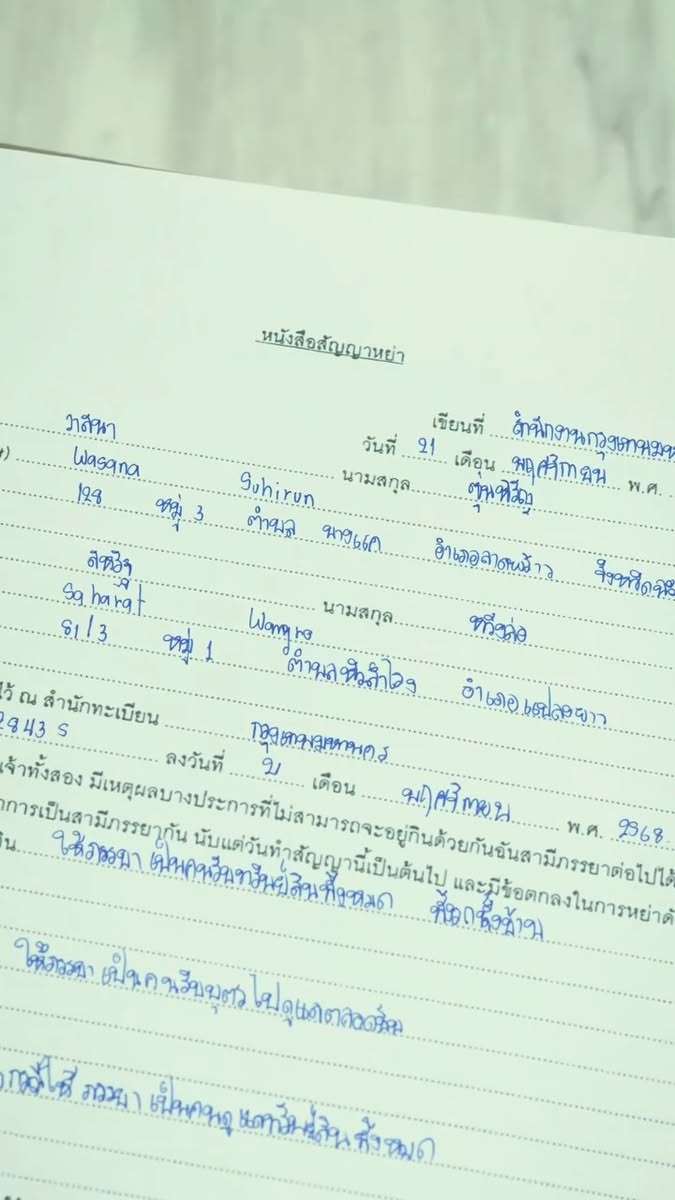 หนังสือสัญญาหย่า
เขียนที่ สำนักงานกรุงเทพมห
วันที่ 21 เดือน พฤศจิกายน พ.ศ.
วาสนา นามสกุล
Wasana Suhirun
128 หมู่ 3 ตำบล บางแค อำเภอลาดพร้าว จังหวัด
นามสกุล หวังล่อ
Saharat Wangro
81/3 หมู่ 1 ตำบลหัวสำโรง อำเภอแปลงยาว
ไว้ ณ สำนักทะเบียน กรุงเทพมหานคร
2843 S ลงวันที่ เดือน พฤศจิกายน พ.ศ. 2568
เจ้าทั้งสอง มีเหตุผลบางประการที่ไม่สามารถจะอยู่กินด้วยกันฉันสามีภรรยาต่อไปได้
การเป็นสามีภรรยากัน นับแต่วันทำสัญญานี้เป็นต้นไป และมีข้อตกลงในการหย่าดั
ให้ภรรยา เป็นคนรับทรัพย์สินทั้งหมด
ให้ภรรยา เป็นคนรับบุตรไปดูแลตลอดชีพ
ภรรยา เป็นคนดูแลทรัพย์สินทั้งหมด